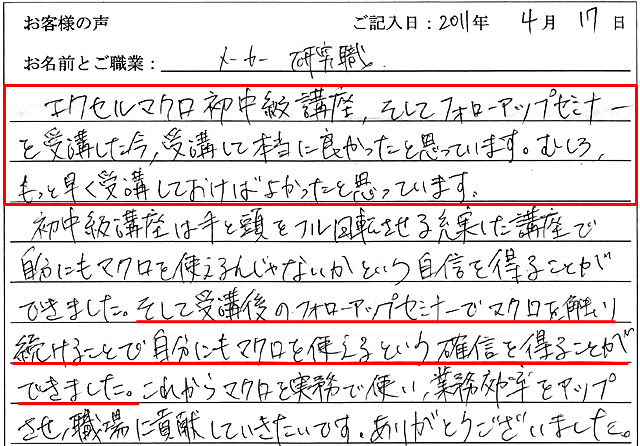 お客様の声 ご記入日：2011年 4月 17日
お名前とご職業： メーカー 研究職
エクセルマクロ初中級講座、そしてフォローアップセミナー
を受講した今、受講して本当に良かったと思っています。むしろ、
もっと早く受講しておけばよかったと思っています。
初中級講座は手と頭をフル回転させる充実した講座で
自分にもマクロを使えるんじゃないかという自信を得ることが
できました。そして受講後のフォローアップセミナーでマクロを触り
続けることで自分にもマクロを使えるという確信を得ることが
できました。これからマクロを実務で使い、業務効率をアップ
させ、職場に貢献していきたいです。ありがとうございました。